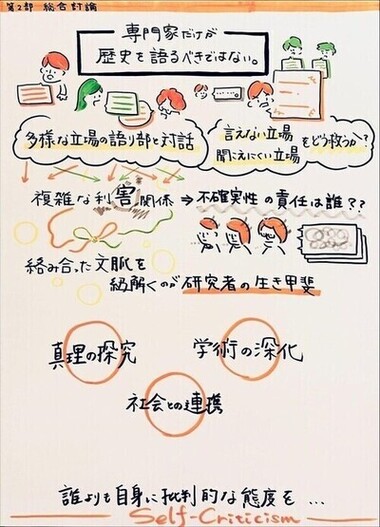 第2部 総合討論
専門家だけが
歴史を語るべきではない。
多様な立場の語り部と対話
言えない立場
聞こえにくい立場
をどう救うか?
複雑な利害関係 ⇒ 不確実性の責任は誰??
絡み合った文脈を
紐解くのが研究者の生き甲斐
真理の探究
学術の深化
社会との連携
誰よりも自身に批判的な態度を...
Self-Criticism